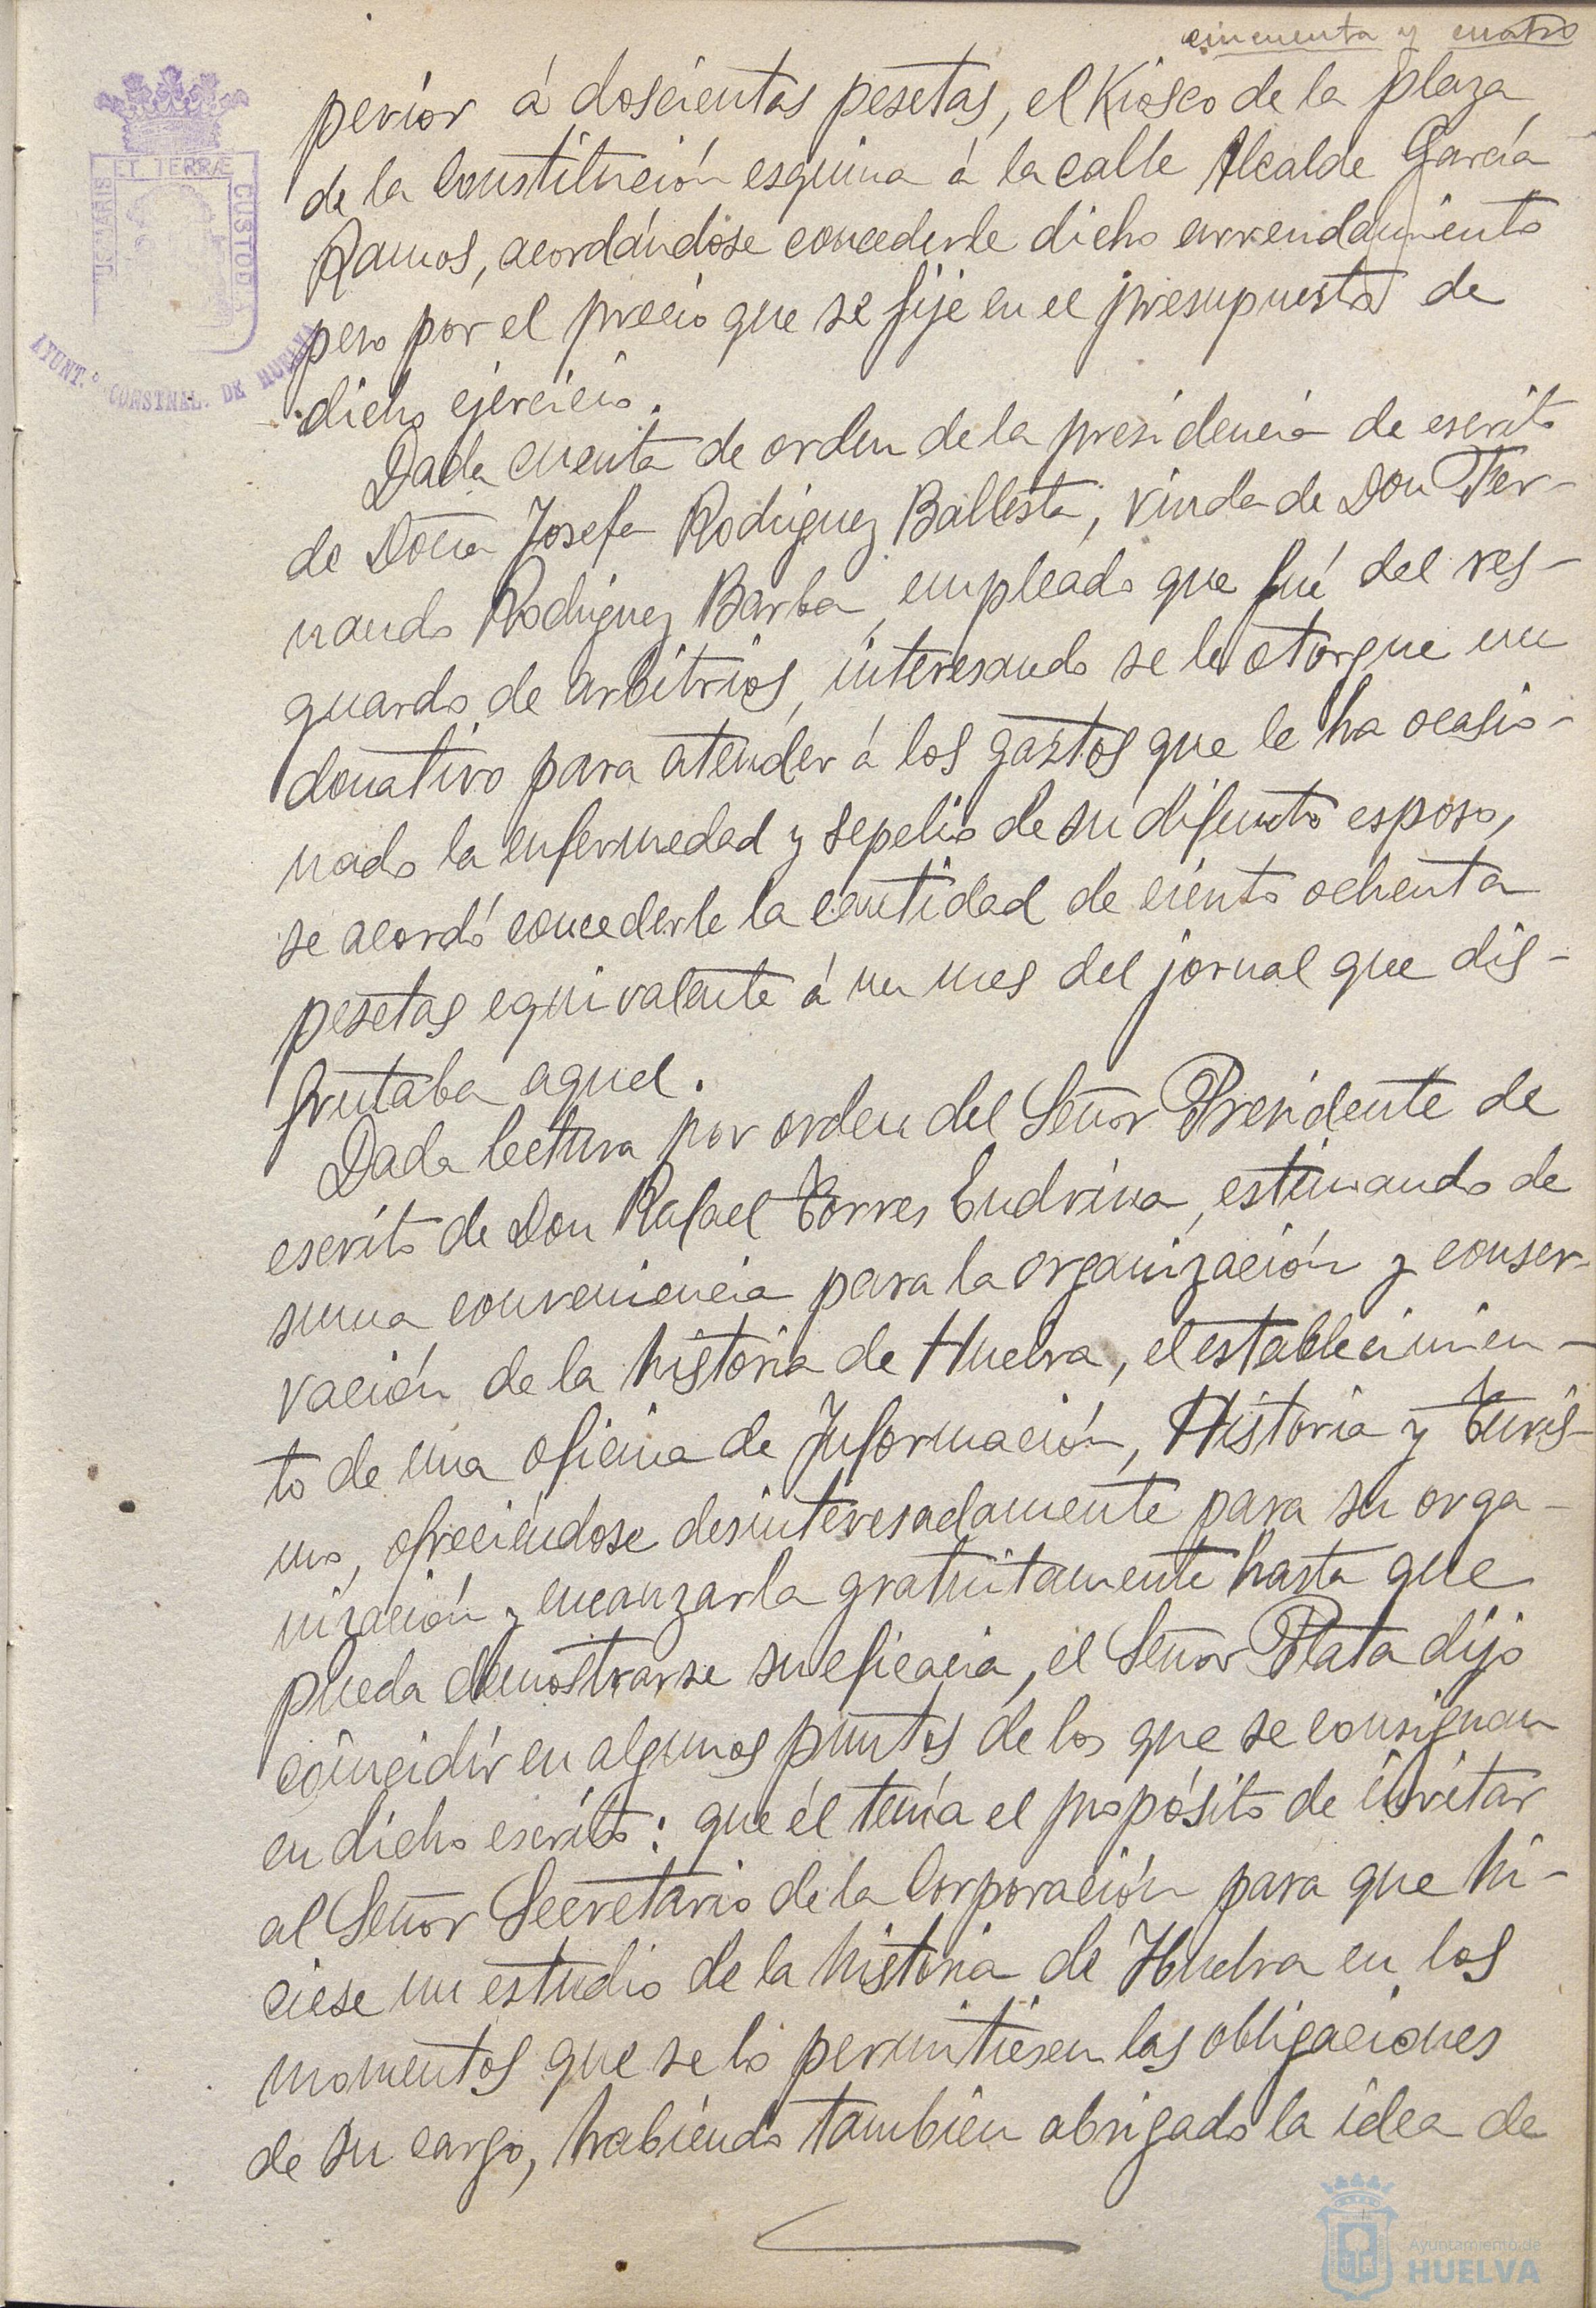 cincuenta y cuatro
perior á doscientas pesetas, el Kiosco de la plaza
de la Constitución esquina á la calle Alcalde García
Ramos, acordándose concederle dicho arrendamiento
pero por el precio que se fije en el presupuesto de
dicho ejercicio.
Dada cuenta de orden de la presidencia de escrito
de Doña Josefa Rodriguez Ballesta, viuda de Don Fer-
nando Rodriguez Barba, empleado que fué del res-
guardo de arbitrios, interesando se le otorgue un
donativo para atender á los gastos que le ha ocasio-
nado la enfermedad y sepelio de su difunto esposo,
se acordó concederle la cantidad de ciento ochenta
pesetas equivalente á un mes del jornal que dis-
frutaba aquel.
Dada lectura por orden del Señor Presidente de
escrito de Don Rafael Torres Endrina, estimando de
suma conveniencia para la organización y conser-
vación de la historia de Huelva, el establecimien-
to de una oficina de Información, Historia y Turis-
mo, ofreciéndose desinteresadamente para su orga-
nización y encauzarla gratuitamente hasta que
pueda demostrarse su eficacia, el Señor Plata dijo
coincidir en algunos puntos de los que se consignan
en dicho escrito: que él tenía el propósito de invitar
al Señor Secretario de la Corporación para que hi-
ciese un estudio de la historia de Huelva en los
momentos que se lo permitiesen las obligaciones
de su cargo, habiendo también abrigado la idea de
ET TERRÆ
CUSTODIA
AYUNT.º CONSTNAL. DE HUELVA
Ayuntamiento de
HUELVA